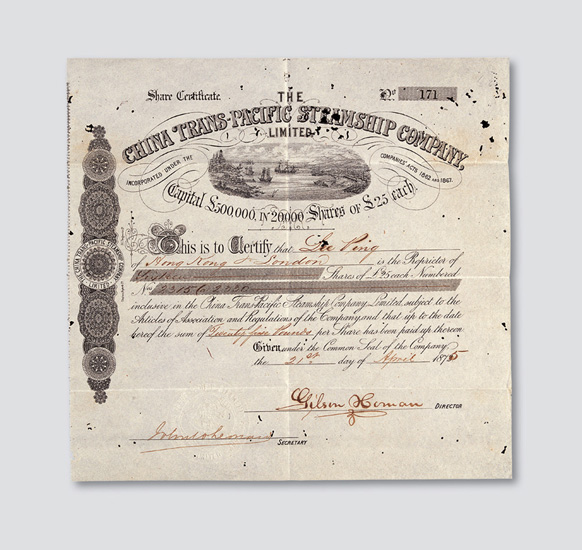 Share Certificate.
No 171
THE
CHINA TRANS-PACIFIC STEAMSHIP COMPANY,
LIMITED
INCORPORATED UNDER THE
COMPANIES' ACTS 1862 AND 1867.
Capital £500,000, IN 20,000 Shares of £25 each.
CHINA TRANS-PACIFIC STEAMSHIP COMPANY
LIMITED
This is to Certify that Lee Ping
of Hong Kong & London is the Proprietor of
Shares of £25 each Numbered
Nos
inclusive in the China Trans-Pacific Steamship Company, Limited, subject to the
Articles of Association and Regulations of the Company, and that up to the date
hereof the sum of Twenty five Pounds per Share has been paid up thereon.
Given under the Common Seal of the Company
the 21st day of April 1875
DIRECTOR
SECRETARY